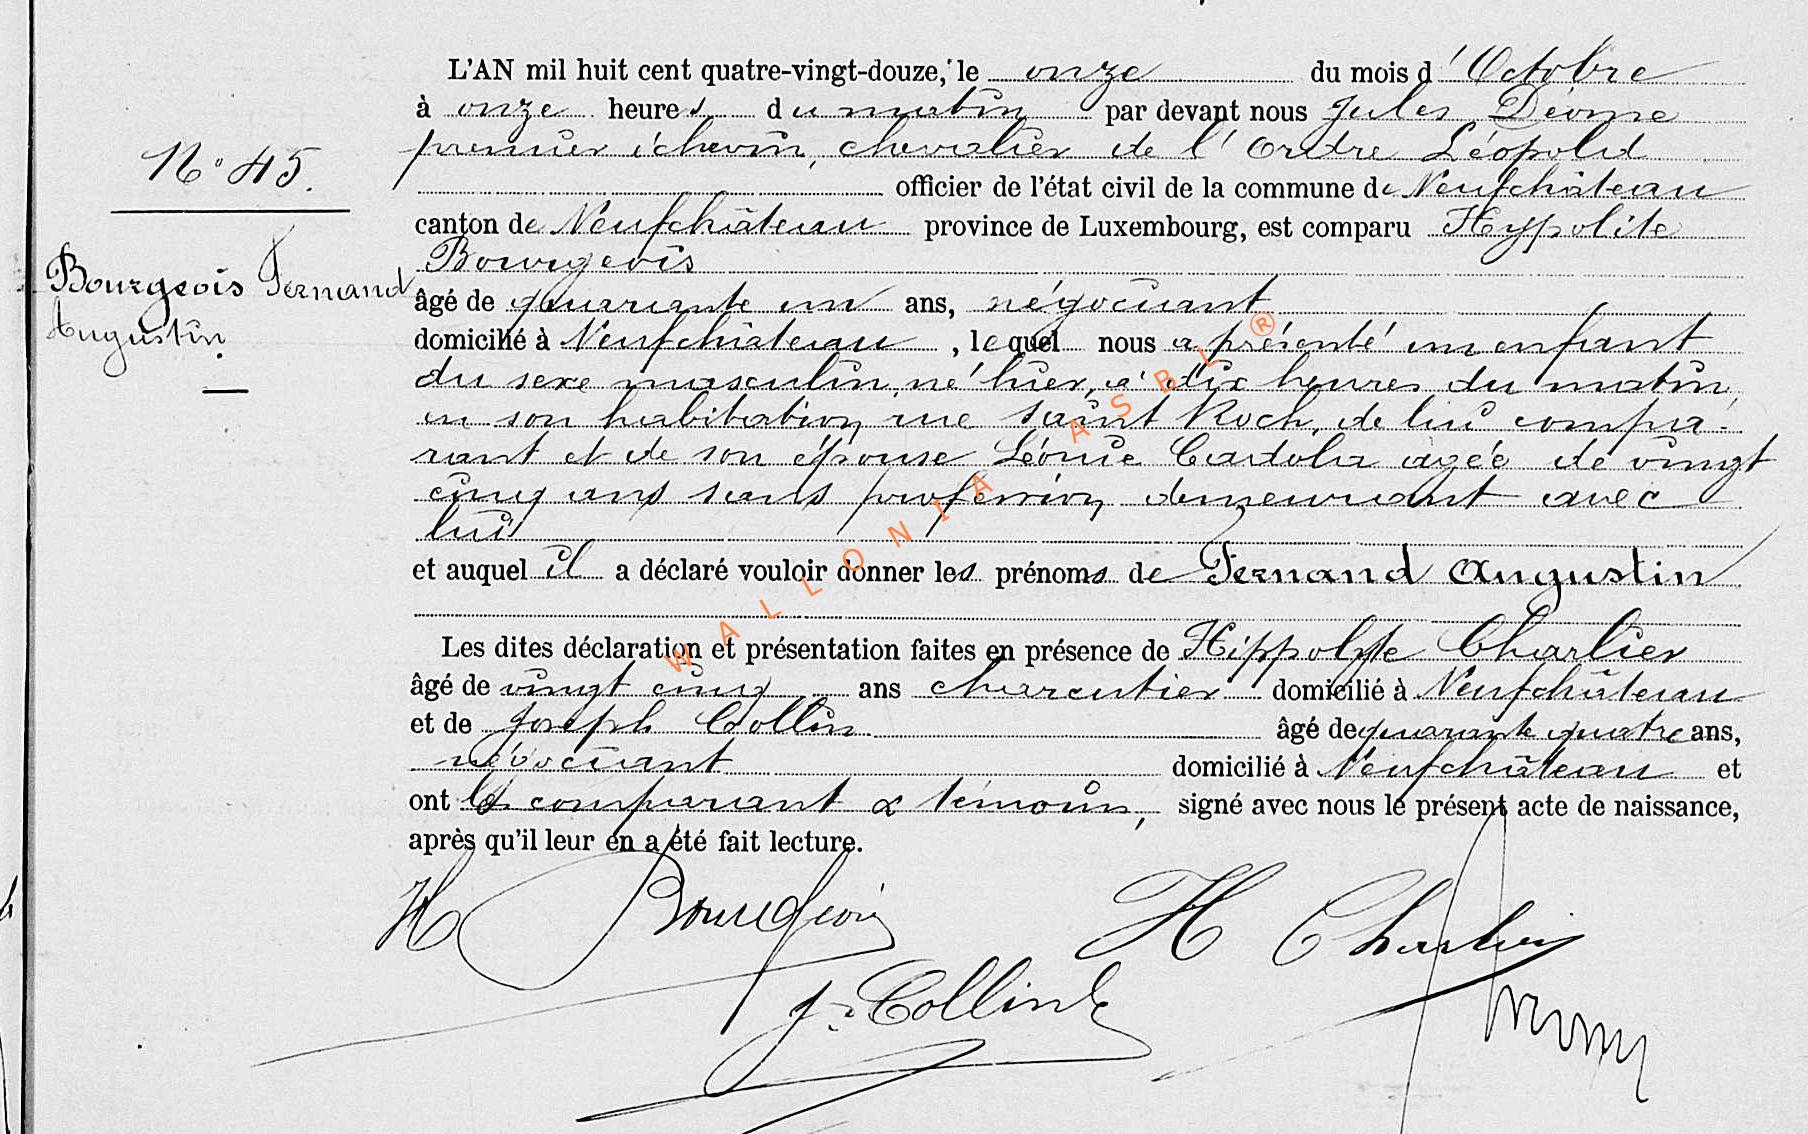 L'AN mil huit cent quatre-vingt-douze, le onze du mois d'Octobre
à onze heures du matin par devant nous Jules Déome
premier échevin, chevalier de l'Ordre Léopold
officier de l'état civil de la commune de Neufchâteau
canton de Neufchâteau province de Luxembourg, est comparu Hyppolite
Bourgeois
âgé de quarante un ans, négociant
domicilié à Neufchâteau, lequel nous a présenté un enfant
du sexe masculin, né hier, à dix heures du matin,
en son habitation, rue Saint Roch, de lui compa-
rant et de son épouse Léonie Cardola agée de vingt
cinq ans sans profession, demeurant avec
lui
et auquel il a déclaré vouloir donner les prénoms de Fernand Augustin
Les dites déclaration et présentation faites en présence de Hippolyte Charlier
âgé de vingt cinq ans charcutier domicilié à Neufchâteau
et de Joseph Collin âgé de quarante quatre ans,
négociant domicilié à Neufchâteau et
ont les comparant & témoins, signé avec nous le présent acte de naissance,
après qu'il leur en a été fait lecture.
N° 45.
Bourgeois Fernand
Augustin.
H Bourgeois
H Charlier
J. Collin
WALLONIA ASBL ®